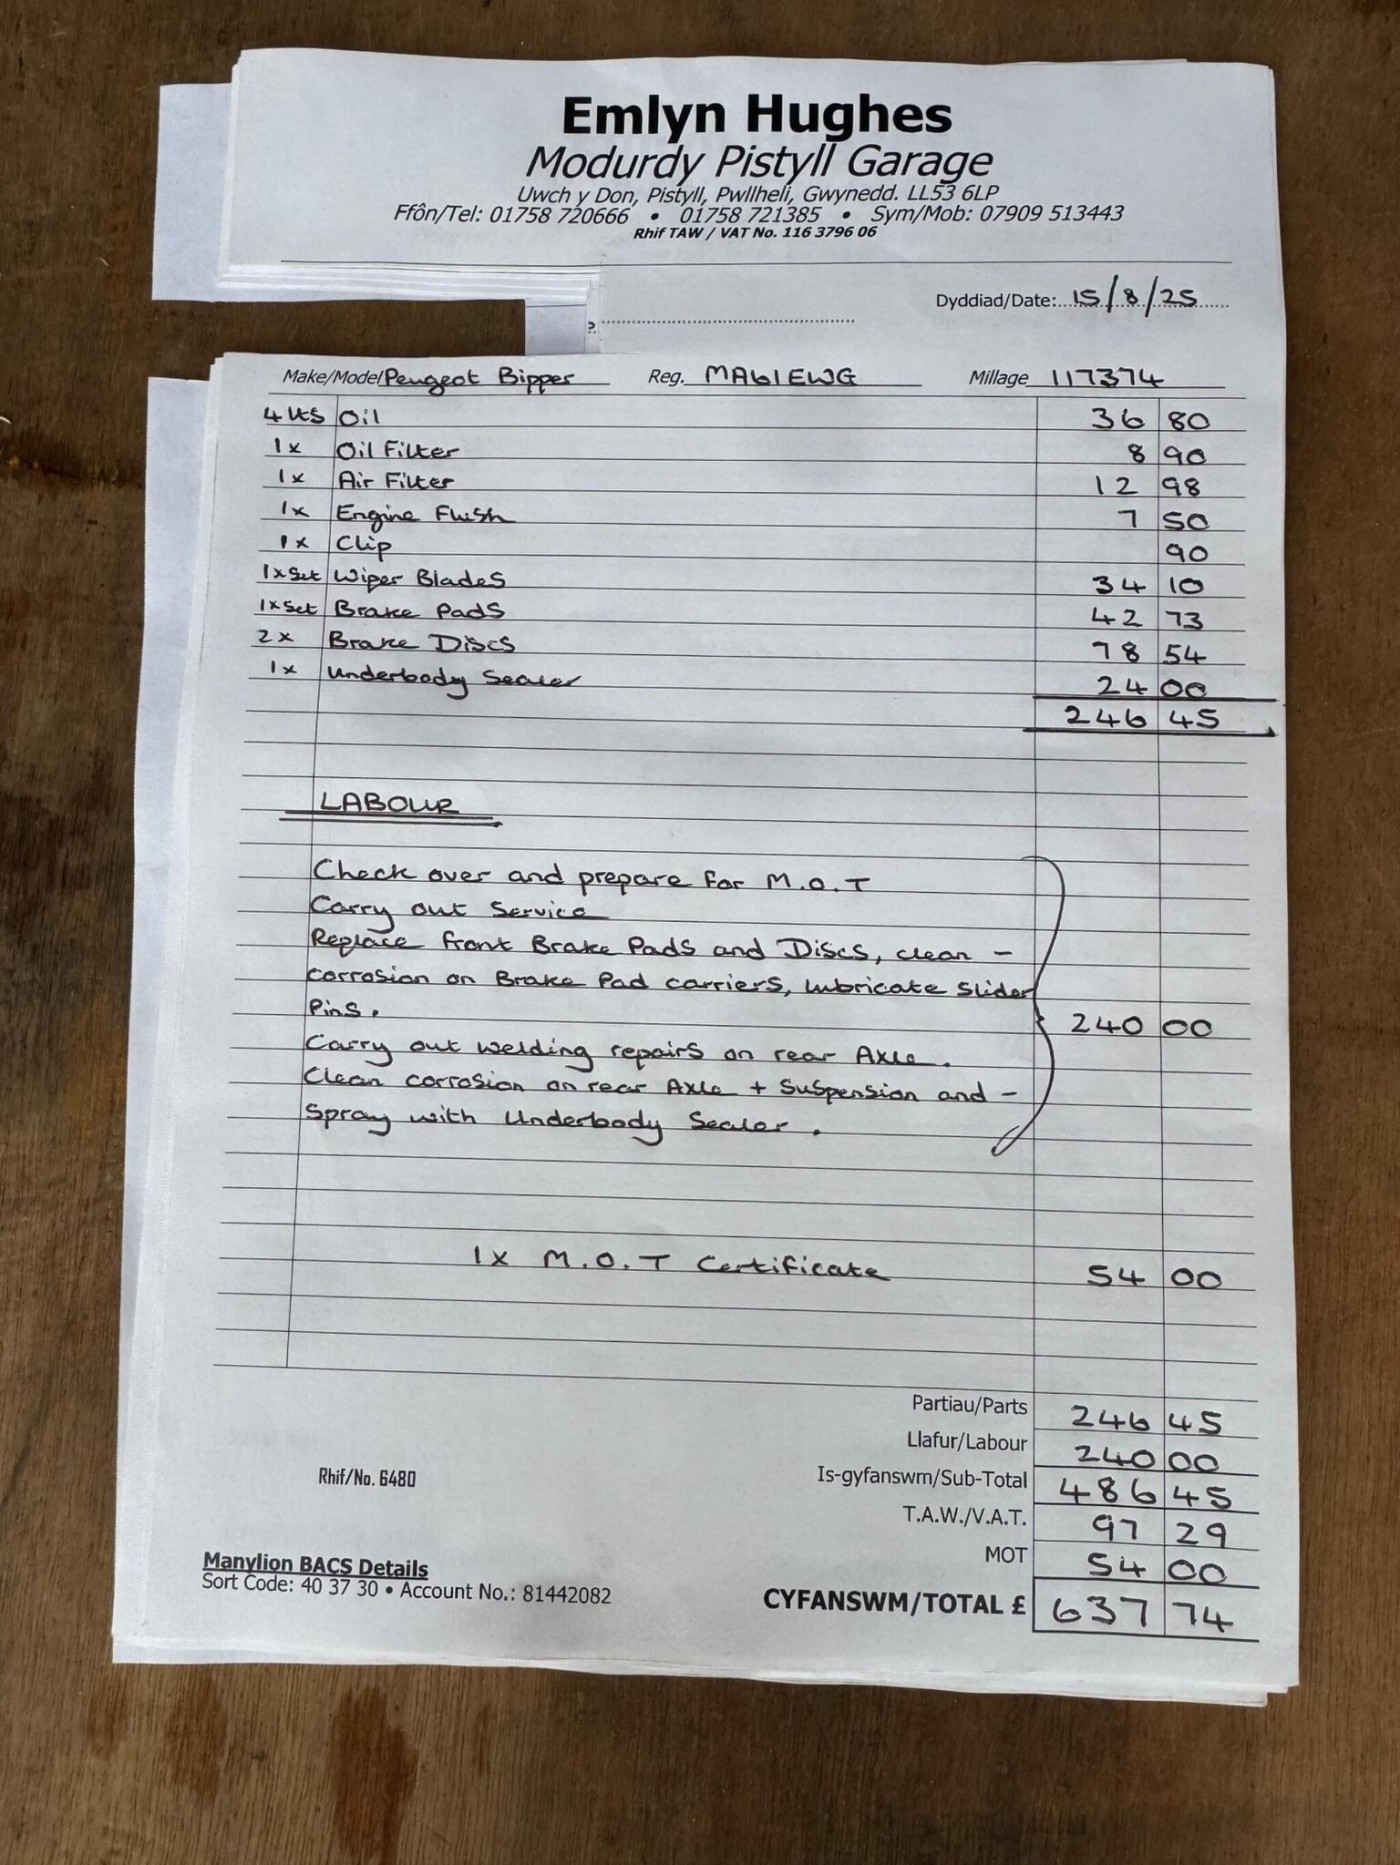 Emlyn Hughes
Modurdy Pistyll Garage
Uwch y Don, Pistyll, Pwllheli, Gwynedd. LL53 6LP
Ffôn/Tel: 01758 720666 • 01758 721385 • Sym/Mob: 07909 513443
Rhif TAW / VAT No. 116 3796 06
Dyddiad/Date: 15/8/25
Make/Model Peugeot Bipper Reg. MA61EWG Millage 117374
4 Lts Oil 36 80
1x Oil Filter 8 90
1x Air Filter 12 98
1x Engine Flush 7 50
1x Clip 90
1x Set Wiper Blades 34 10
1x Set Brake Pads 42 73
2x Brake Discs 78 54
1x Underbody Sealer 24 00
246 45
LABOUR
Check over and prepare for M.O.T
Carry out Service
Replace front Brake Pads and Discs, clean -
corrosion on Brake Pad carriers, lubricate Slider
Pins.
240 00
Carry out welding repairs on rear Axle.
Clean corrosion on rear Axle + Suspension and -
Spray with Underbody Sealer.
1x M.O.T Certificate 54 00
Partiau/Parts 246 45
Llafur/Labour 240 00
Is-gyfanswm/Sub-Total 486 45
T.A.W./V.A.T. 97 29
MOT 54 00
CYFANSWM/TOTAL £ 637 74
Rhif/No. 6480
Manylion BACS Details
Sort Code: 40 37 30 • Account No.: 81442082